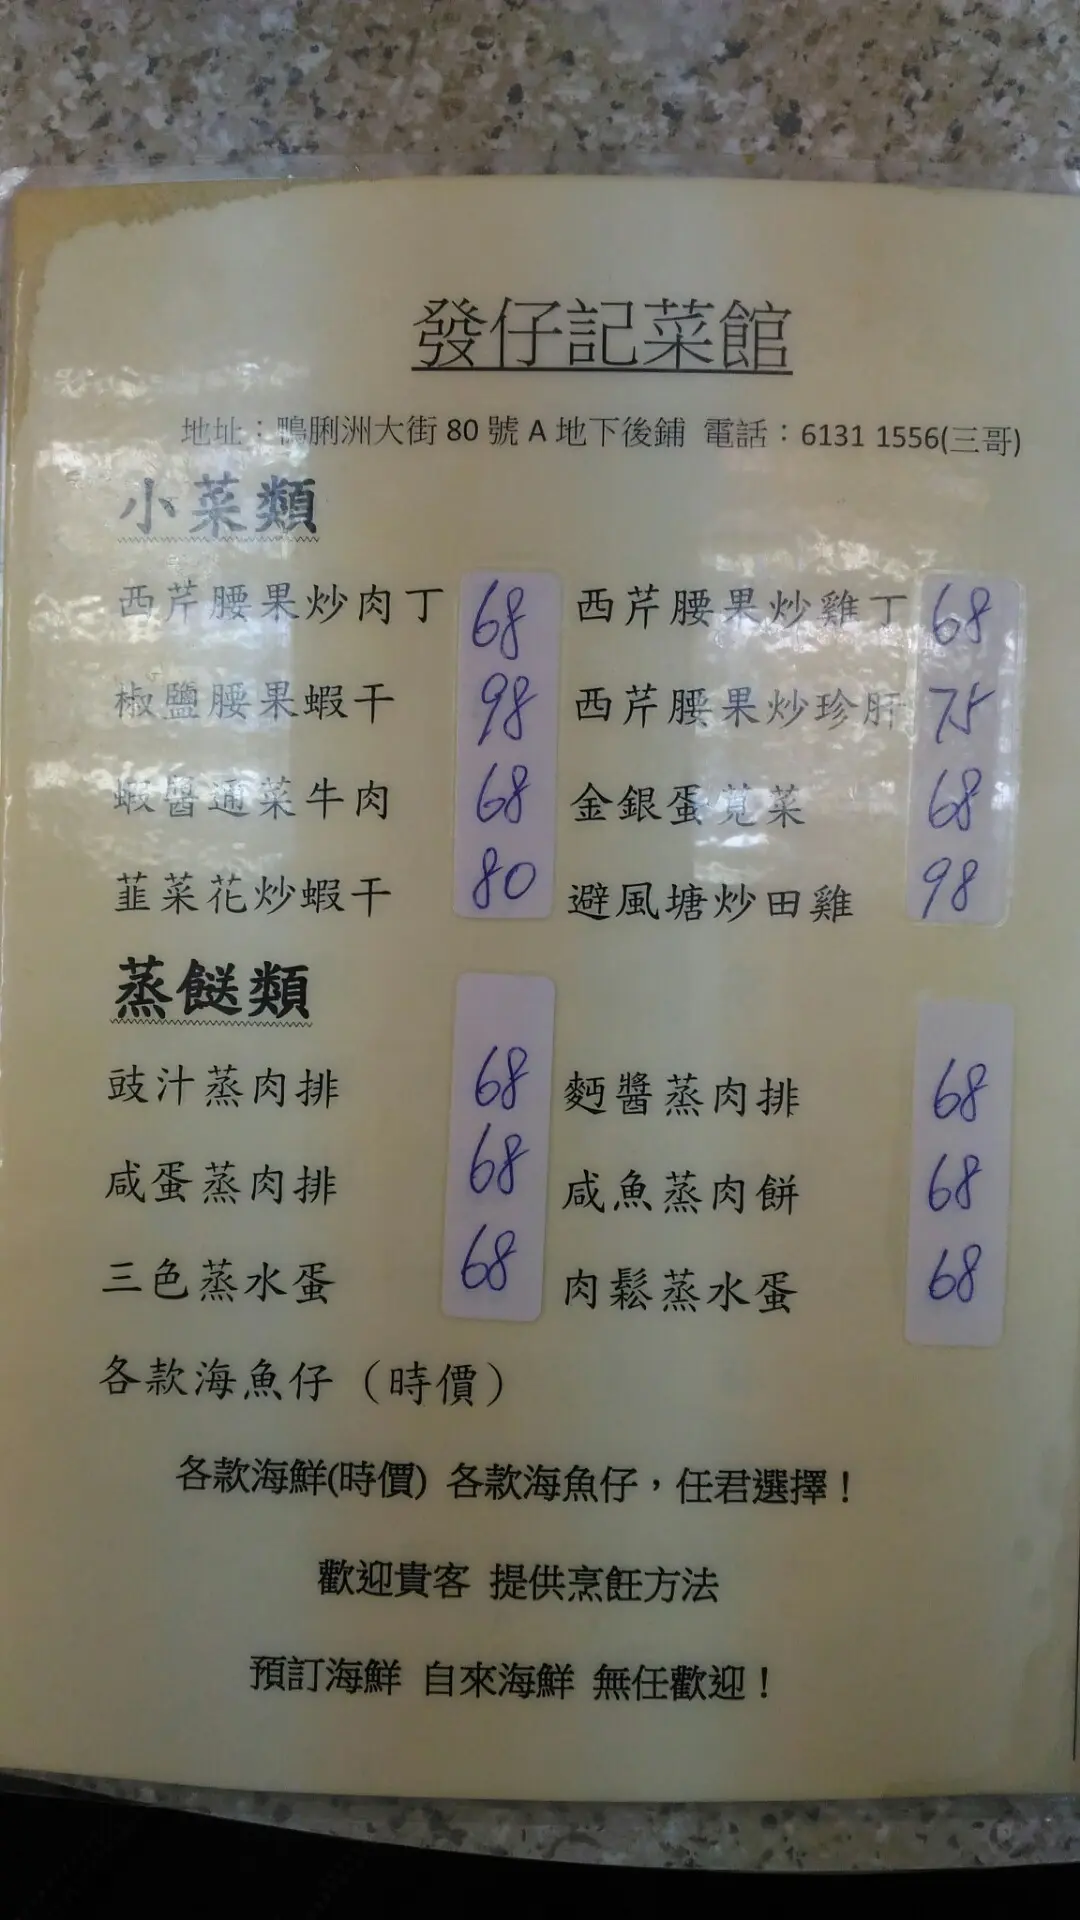 發仔記菜館
地址：鴨脷洲大街 80 號 A 地下後鋪 電話：6131 1556(三哥)
小菜類
西芹腰果炒肉丁 68 西芹腰果炒雞丁 68
椒鹽腰果蝦干 98 西芹腰果炒珍肝 75
蝦醬通菜牛肉 68 金銀蛋莧菜 68
韮菜花炒蝦干 80 避風塘炒田雞 98
蒸餸類
豉汁蒸肉排 68 麪醬蒸肉排 68
咸蛋蒸肉排 68 咸魚蒸肉餅 68
三色蒸水蛋 68 肉鬆蒸水蛋 68
各款海魚仔（時價）
各款海鮮(時價) 各款海魚仔，任君選擇！
歡迎貴客 提供烹飪方法
預訂海鮮 自來海鮮 無任歡迎！